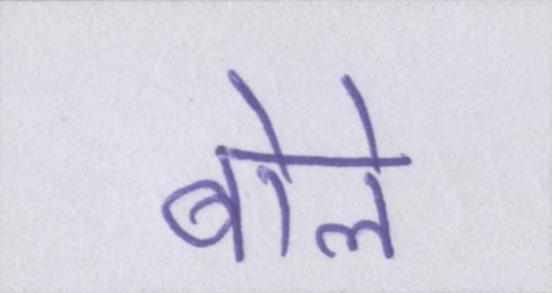 बोले